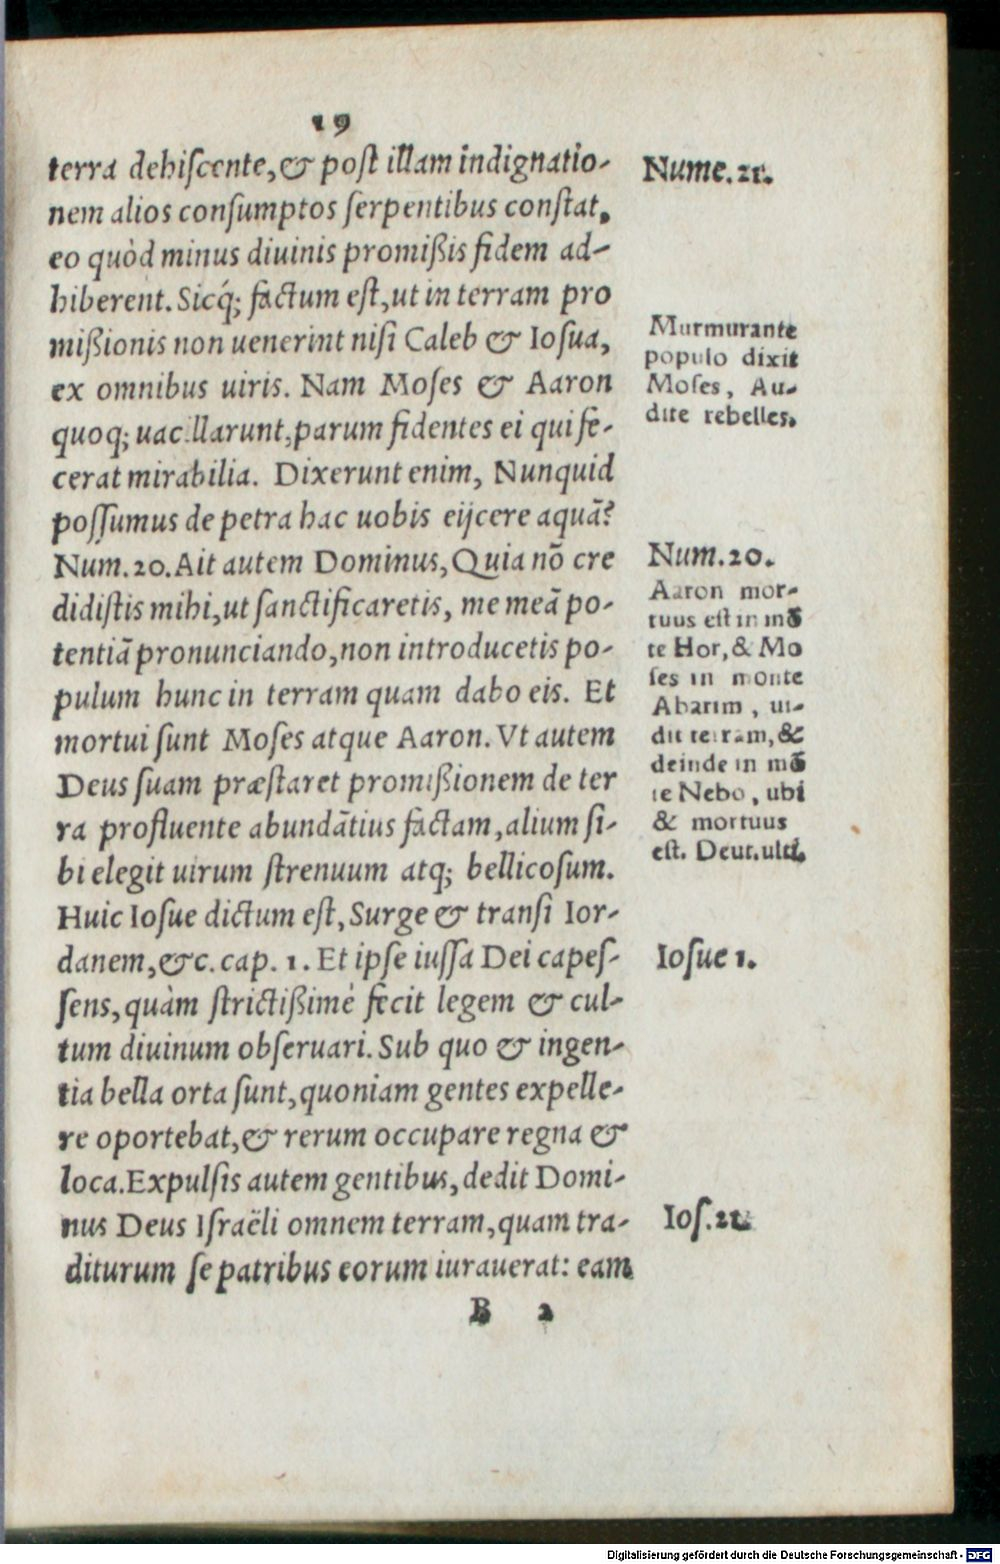 19
terra dehiſcente,& poſt illam indignatio-
nem alios conſumptos ſerpentibus conſtat,
eo quòd minus diuinis promißis fidem ad-
hiberent. Sicq́; factum eſt,ut in terram pro
mißionis non uenerint niſi Caleb & Ioſua,
ex omnibus uiris. Nam Moſes & Aaron
quoq; uacillarunt,parum fidentes ei qui fe-
cerat mirabilia. Dixerunt enim, Nunquid
poſſumus de petra hac uobis eijcere aquā?
Num.20.Ait autem Dominus,Quia nō cre
didiſtis mihi,ut ſanctificaretis, me meā po-
tentiā pronunciando,non introducetis po-
pulum hunc in terram quam dabo eis. Et
mortui ſunt Moſes atque Aaron.Vt autem
Deus ſuam præſtaret promißionem de ter
ra profluente abundātius factam,alium ſi-
bi elegit uirum ſtrenuum atq; bellicoſum.
Huic Ioſue dictum eſt,Surge & tranſi Ior-
danem,&c.cap. 1.Et ipſe iuſſa Dei capeſ-
ſens,quàm ſtrictißimè fecit legem & cul-
tum diuinum obſeruari.Sub quo & ingen-
tia bella orta ſunt,quoniam gentes expelle-
re oportebat,& rerum occupare regna &
loca.Expulſis autem gentibus,dedit Domi-
nus Deus Iſraëli omnem terram,quam tra-
diturum ſe patribus eorum iurauerat: eam
B 2
Nume.21.
Murmurante
populo dixit
Moſes, Au-
dite rebelles.
Num.20.
Aaron mor-
tuus eſt in mō
te Hor,& Mo
ſes in monte
Abarim, ui-
dit terram,&
deinde in mō
te Nebo, ubi
& mortuus
eſt. Deut.ulti.
Ioſue 1.
Ioſ.21.
Digitalisierung gefördert durch die Deutsche Forschungsgemeinschaft - DFG